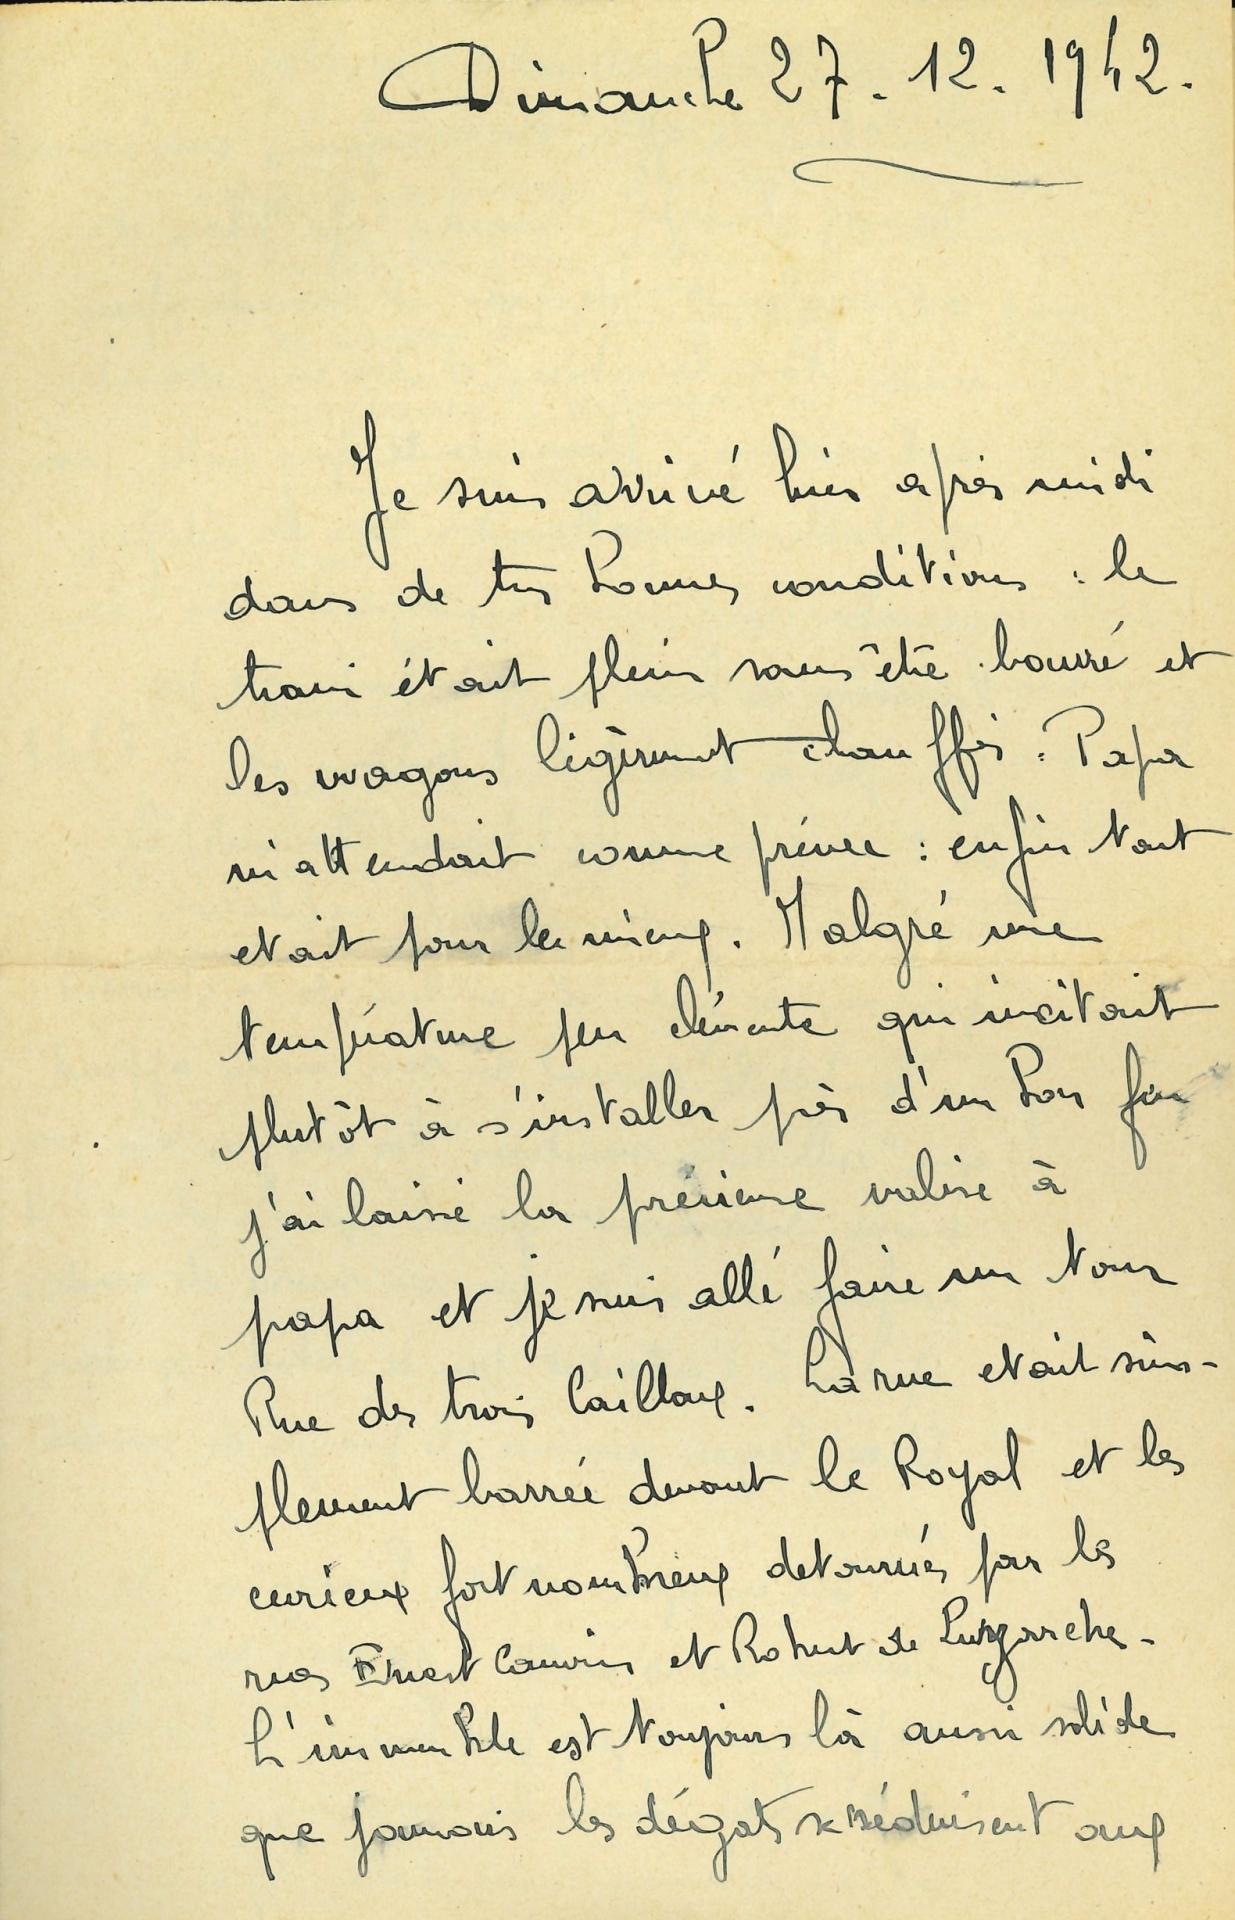 Dimanche 27. 12. 1942.
Je suis arrivé hier après midi
dans de très bonnes conditions : le
train était plein sans être bourré et
les wagons légèrement chauffés. Papa
m'attendait comme prévu : enfin tout
etait pour le mieux. Malgré une
température peu clémente qui incitait
plutôt à s'installer près d'un bon feu
j'ai laissé la précieuse valise à
papa et je suis allé faire un tour
Rue des trois Cailloux. La rue etait sim-
plement barrée devant le Royal et les
curieux fort nombreux detournés par les
rues Ernest Cauvin et Robert de Luzarches.
L'immeuble est toujours là aussi solide
que jamais les dégats se réduisent aux